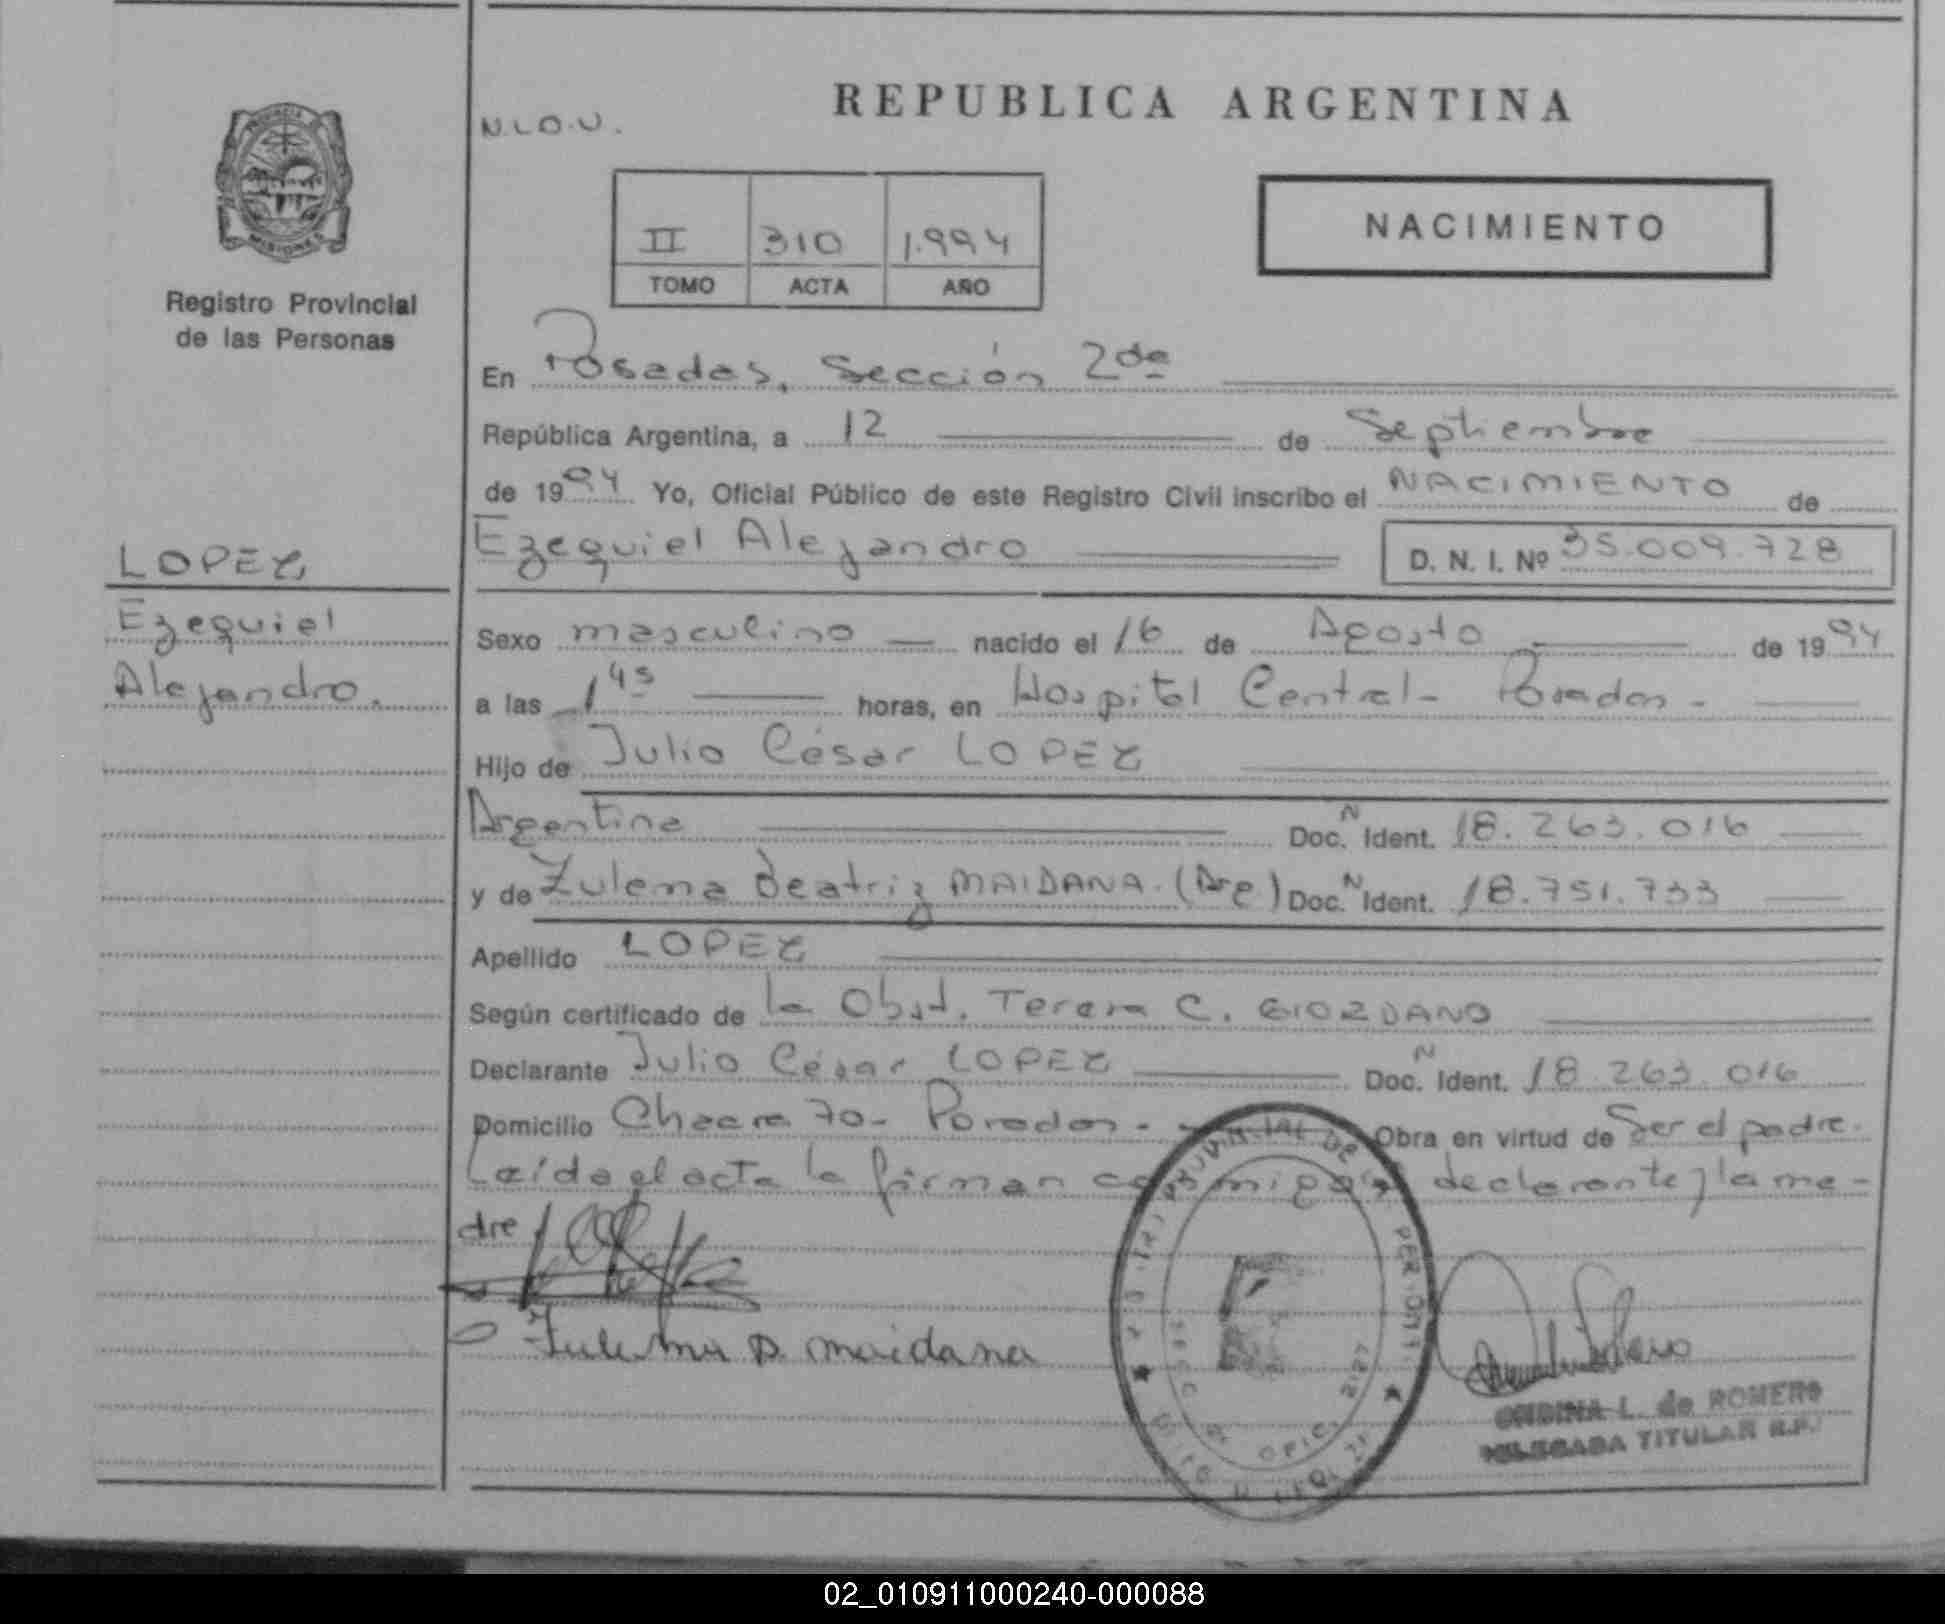 PROVINCIA DE
MISIONES
Registro Provincial
de las Personas
LOPEZ
Ezequiel
Alejandro.
N.L.O.U.
REPUBLICA ARGENTINA
II 310 1.994
TOMO ACTA AÑO
NACIMIENTO
En Posadas, Sección 2da
República Argentina, a 12 de Septiembre
de 1994 Yo, Oficial Público de este Registro Civil inscribo el NACIMIENTO de
Ezequiel Alejandro D. N. I. Nº 35.009.728
Sexo masculino nacido el 16 de Agosto de 1994
a las 1 45 horas, en Hospital Central - Posadas -
Hijo de Julio César LOPEZ
Argentina Doc. N Ident. 18.263.016
y de Zulema Beatriz MAIDANA. (Arg) Doc. N Ident. 18.751.733
Apellido LOPEZ
Según certificado de la Obst. Teresa C. GIORDANO
Declarante Julio César LOPEZ Doc. N Ident. 18.263.016
Domicilio Chacra 70 - Posadas - Obra en virtud de Ser el padre.
Leída el acta la firman conmigo el declarante y la ma-
dre
Zulema B. maidana
L. de ROMERO
DELEGADA TITULAR R.P.
02_010911000240-000088